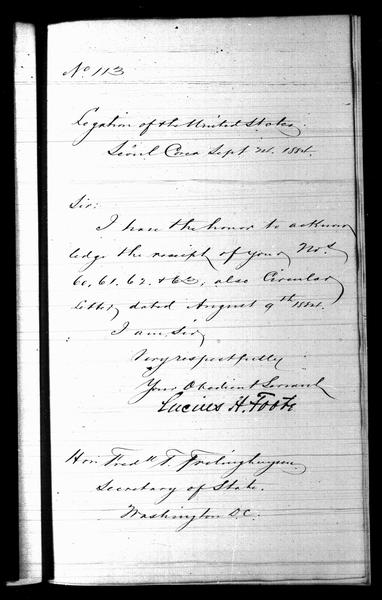 No 113
Legation of the United States
Seoul Corea Sept 1884.
Sir:
I have the honor to acknow
ledge the receipt of your Nos.
60, 61, 62 & 63, also Circular
letter dated August 9th 1884.
I am Sir
Very respectfully
Your Obedient Servant
Lucius H. Foote
Hon. Fredk T. Frelinghuysen
Secretary of State.
Washington D.C.